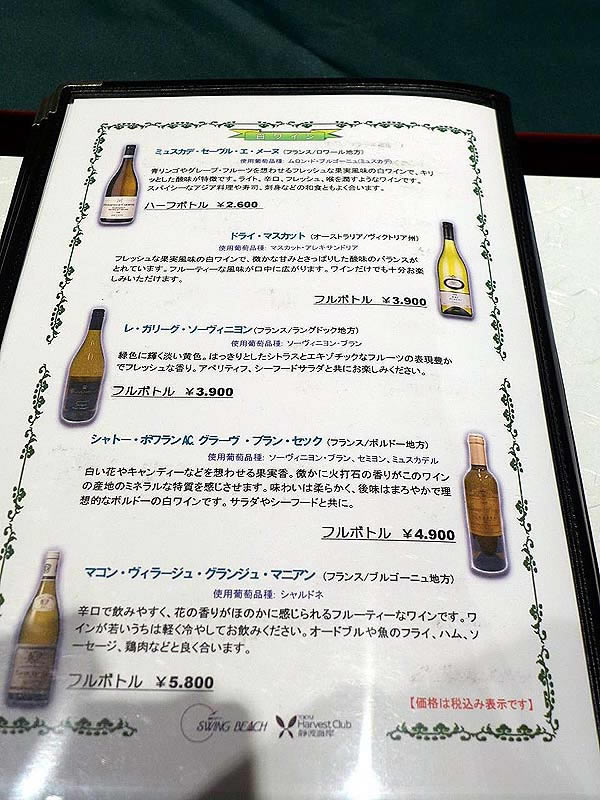 白ワイン
ミュスカデ・セーヴル・エ・メーヌ（フランス/ロワール地方）
使用葡萄品種: ムロン・ド・ブルゴーニュ(ミュスカデ)
青リンゴやグレープ・フルーツを想わせるフレッシュな果実風味の白ワインで、キリ
ッとした酸味が特徴です。ライト、辛口、フレッシュ、喉を潤すようなワインです。
スパイシーなアジア料理や寿司、刺身などの和食ともよく合います。
ハーフボトル ￥2.600
ドライ・マスカット（オーストラリア/ヴィクトリア州）
使用葡萄品種: マスカット・アレキサンドリア
フレッシュな果実風味の白ワインで、微かな甘みとさっぱりした酸味のバランスが
とれています。フルーティーな風味が口中に広がります。ワインだけでも十分お楽
しみいただけます。
フルボトル ￥3.900
レ・ガリーグ・ソーヴィニヨン（フランス/ラングドック地方）
使用葡萄品種: ソーヴィニヨン・ブラン
緑色に輝く淡い黄色。はっきりとしたシトラスとエキゾチックなフルーツの表現豊か
でフレッシュな香り。アペリティフ、シーフードサラダと共にお楽しみください。
フルボトル ￥3.900
シャトー・ボワランAC. グラーヴ・ブラン・セック（フランス/ボルドー地方）
使用葡萄品種: ソーヴィニヨン・ブラン、セミヨン、ミュスカデル
白い花やキャンディーなどを想わせる果実香。微かに火打石の香りがこのワイン
の産地のミネラルな特質を感じさせます。味わいは柔らかく、後味はまろやかで理
想的なボルドーの白ワインです。サラダやシーフードと共に。
フルボトル ￥4.900
マコン・ヴィラージュ・グランジュ・マニアン（フランス/ブルゴーニュ地方）
使用葡萄品種: シャルドネ
辛口で飲みやすく、花の香りがほのかに感じられるフルーティーなワインです。ワ
インが若いうちは軽く冷やしてお飲みください。オードブルや魚のフライ、ハム、ソ
ーセージ、鶏肉などと良く合います。
フルボトル ￥5.800
【価格は税込み表示です】
SWING BEACH
TOKYU
Harvest Club
静波海岸